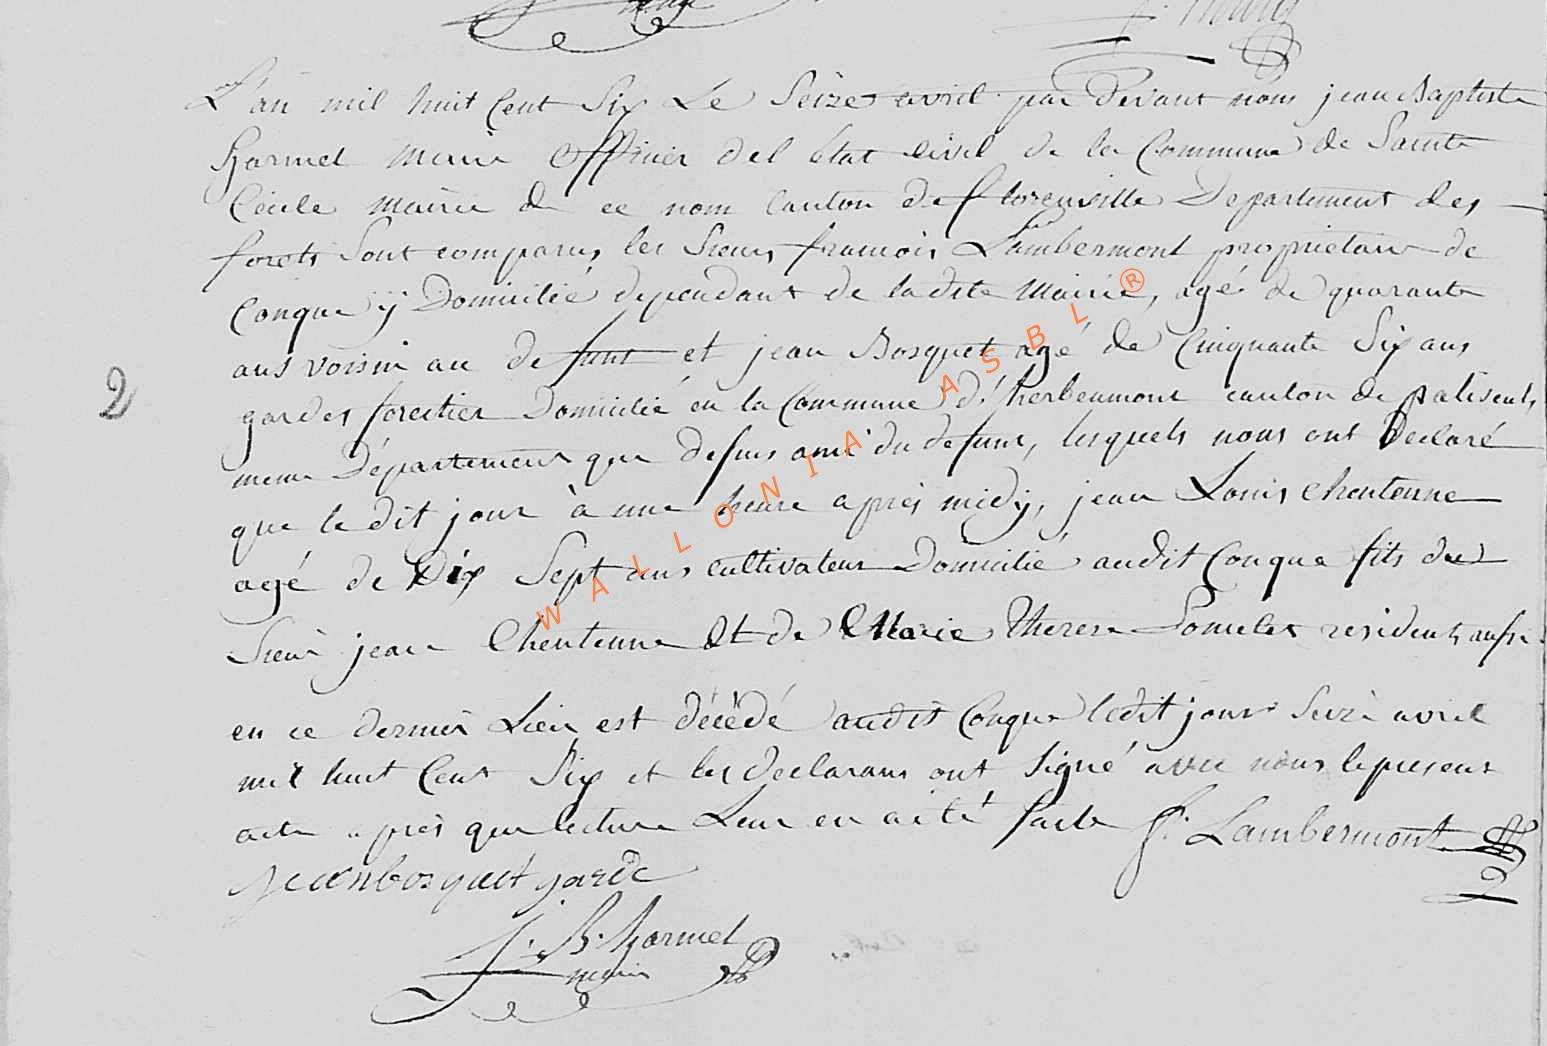 L'an mil huit Cent Six Le Seize avril par devant nous jean Baptiste
harmel maire officier del Etat civil de la Commune de Sainte
Cecile mairie de ce nom canton de florenville Departement des
forets Sont comparus les Sieurs francois Lambermont proprietaire de
Conque ÿ Domicilié dependant de ladite Mairie, agé de quarante
ans voisin au defunt et jean Bosquet agé de Cinquante Six ans
gardes forestier Domicilié en la Commune d'herbeumont canton de paliseul,
meme Département que defsus ami du defunt, lesquels nous ont Declaré
que le dit jour à une heure après midÿ, jean Louis Chentenne
agé de Dix Sept ans cultivateur Domicilié audit Conque fils du
Sieur jean Chentenne Et de Marie Therese Pomelet resident aufsi
en ce dernier Lieu est décédé audit Conque ledit jour Seize avril
mil huit Cent Six et les declarans ont Signé avec nous le present
acte après que lecture Leur en a été faite f. Lambermont
Jean bosquet garde
J. B. harmel
maire
2
WALLONIA ASBL ®